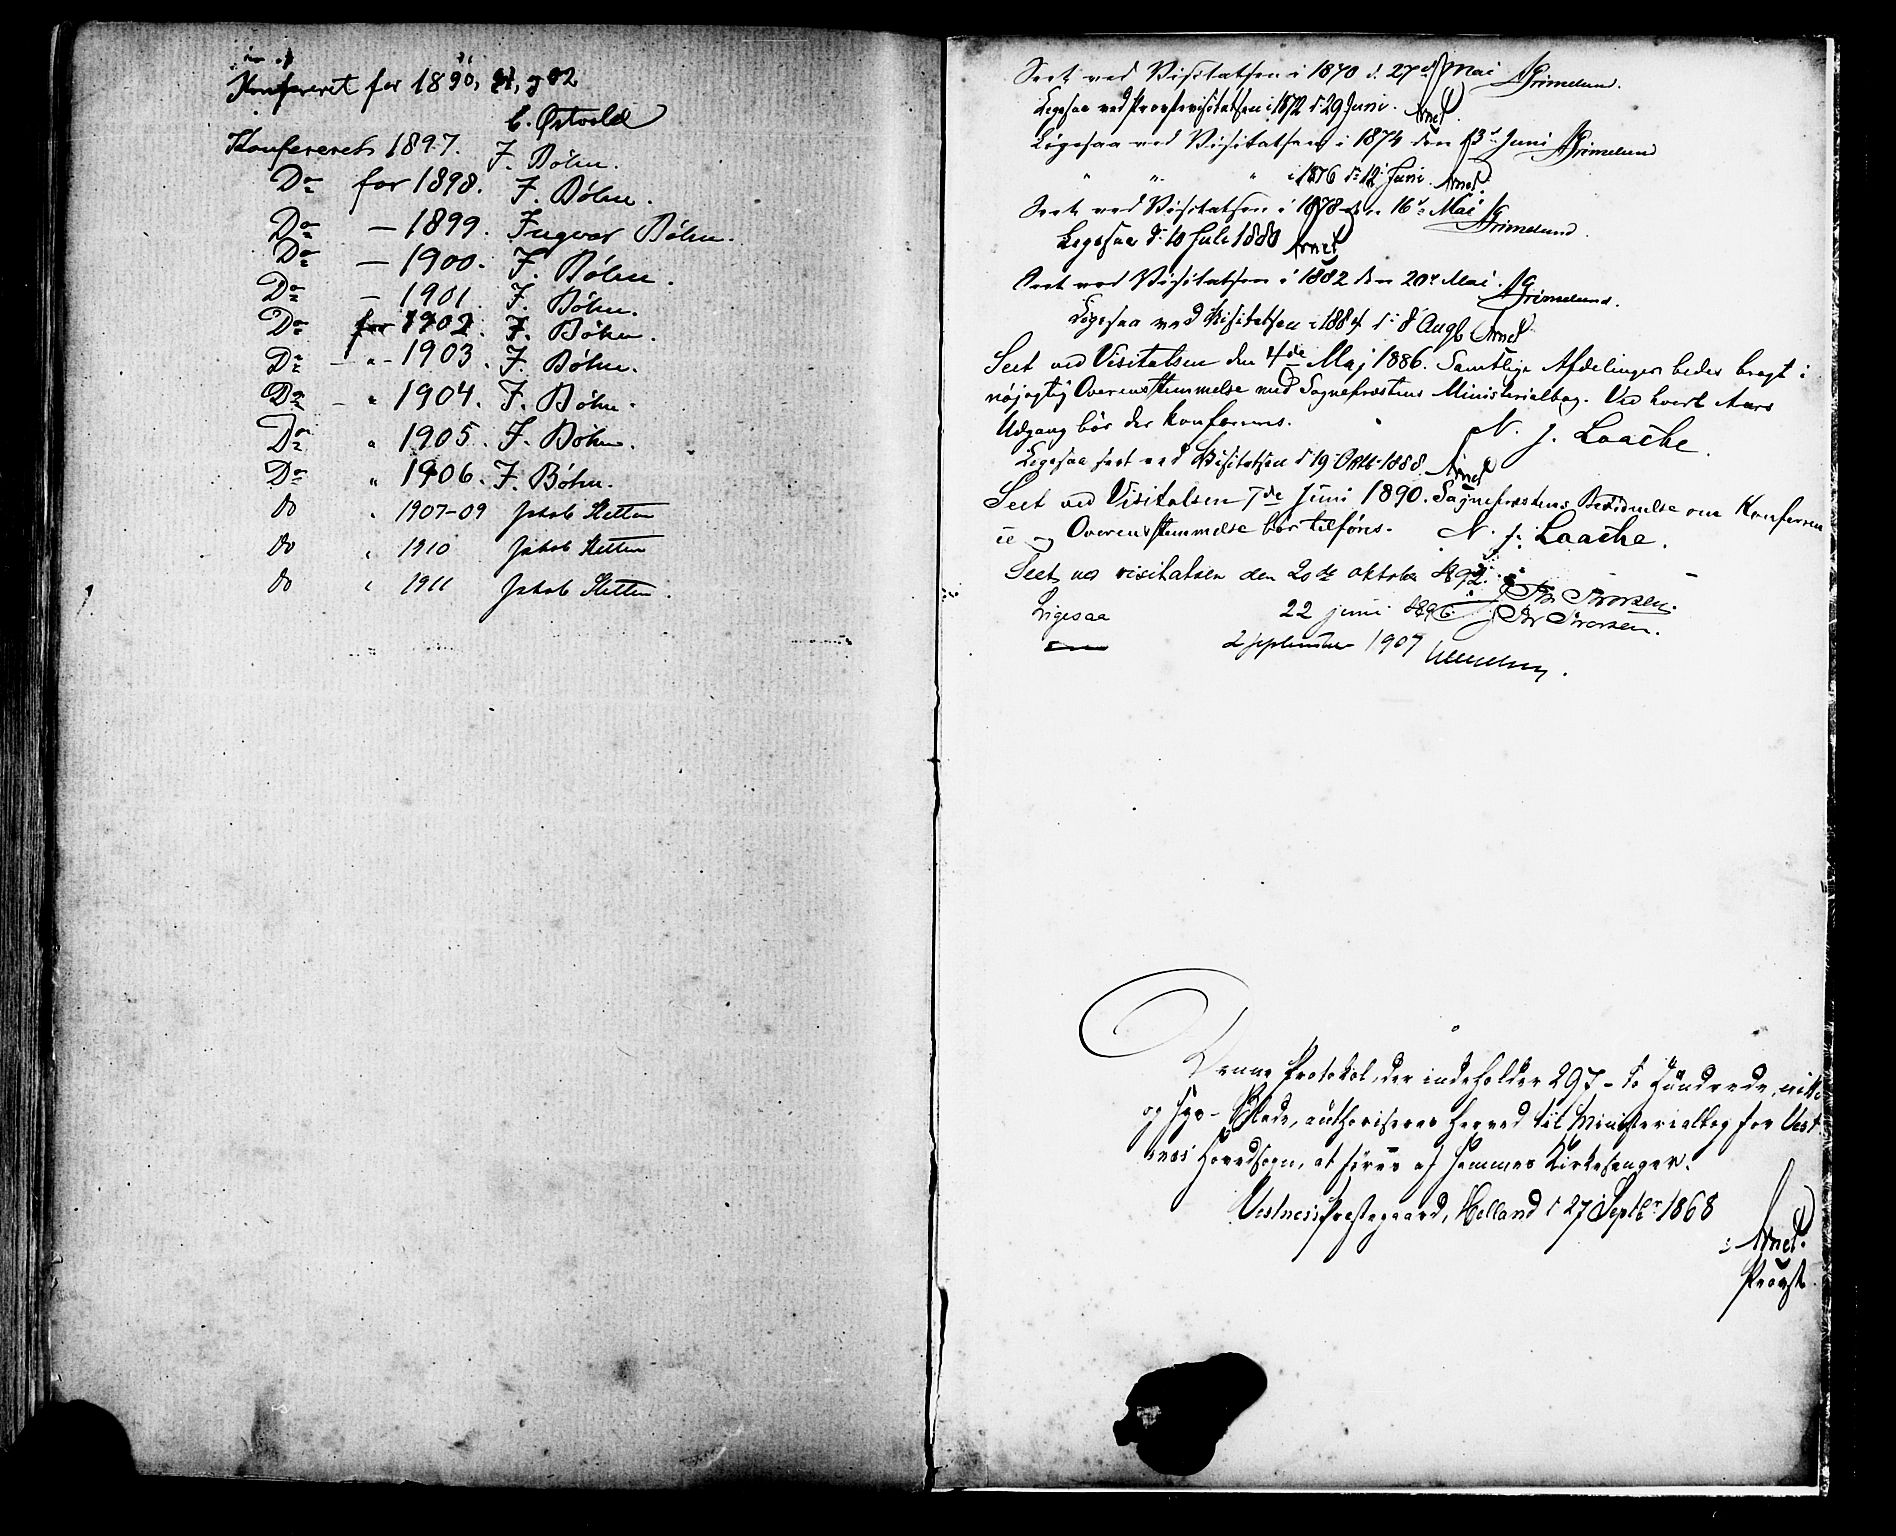 Konfereret for 1890, 91, og 92
C. Østvold
Konfereret 1897. I. Bøhn.
Do for 1898. I. Bøhn.
Do — 1899. Ingvar Bøhn.
Do — 1900. I. Bøhn.
Do — 1901 I. Bøhn.
Do for 1902. I. Bøhn.
Do - " - 1903. I. Bøhn.
Do - " 1904. I. Bøhn.
Do " 1905. I. Bøhn.
Do " 1906. I. Bøhn.
do " 1907-09 Jakob Sletten
do " 1910 Jakob Sletten
do " 1911 Jakob Sletten.
Seet ved Visitatsen i 1870 d. 27de Mai Grimelund.
Ligesaa ved Provstevisitatsen i 1872 d. 29 Juni. Arnet.
Ligesaa ved Visitatsen i 1874 den 13de Juni Grimelund
" " " i 1876 d: 12 Juni. Arnet.
Seet ved Visitatsen i 1878 den 16de Mai Grimelund.
Ligesaa d: 10 Juli 1880 Arnet
Seet ved Visitatsen i 1882 den 20de Mai. Grimelund.
Ligesaa ved Visitatsen i 1884 d: 8 Augb Arnet
Seet ved Visitatsen den 4de Maj 1886. Samtlige Afdelinger bedes bragt i
nøjagtig Overensstemmelse med Sognepræstens Ministerialbog. Ved hvert Aars
Udgang bør der konfereres.
N. J. Laache.
Ligesaa seet ved Visitatsen d 19 Oktb. 1888. Arnet
Seet ved Visitatsen 7de Juni 1890. Sognepræstens Bevidnelse om Konferen
ce og Overensstemmelse bør tilføies. N. J. Laache.
Seet ved visitatsen den 20de oktober 1892. Brorsen.
Ligesaa 22 juni 1896. Brorsen.
— 2 september 1907
Denne Protokol, der indeholder 297 - to Hundrede, nitti
og syv - Blade, authoriseres herved til Ministerialbog for Vest-
ness Hovedsogn, at føres af sammes Kirkesanger.
Vestness Prestegaard, Helland d 27 Septbr. 1868
Arnet.
Provst